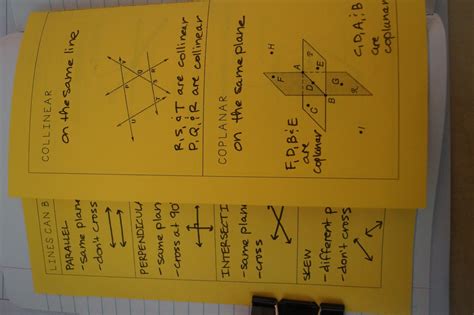 COLLINEAR
on the same line
R, S, & T are collinear
P, Q, & R are collinear
COPLANAR
on the same plane
C, D, A, & B
are
coplanar
F, D, B & E
are
coplanar
A
B
C
D
E
F
G
H
I
LINES CAN B
PARALLEL
- same plane
- don't cross
PERPENDICULA
- same plan
- cross at 90°
INTERSECTI
- same plan
- cross
SKEW
- different p
- don't cross